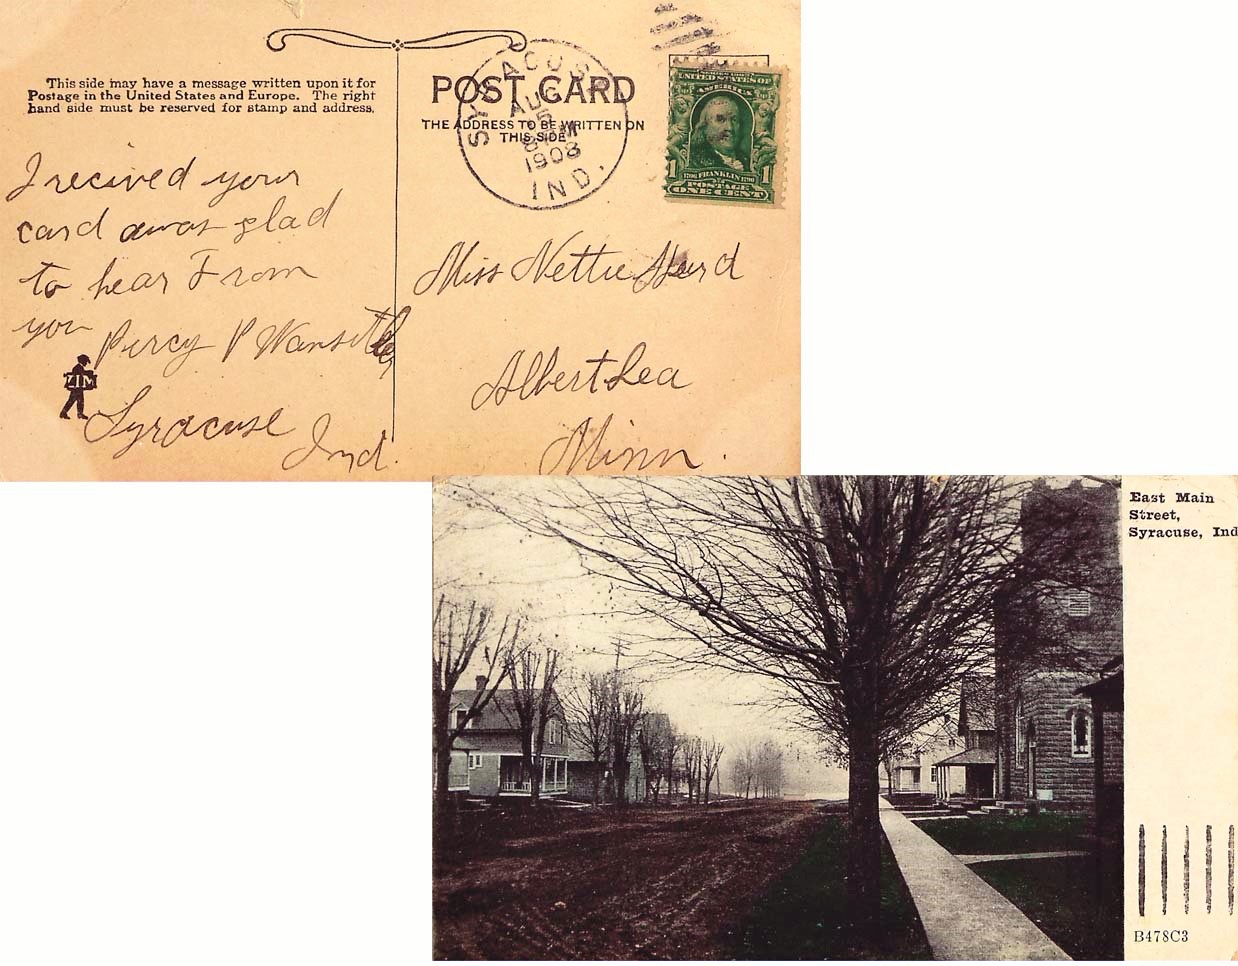 This side may have a message written upon it for
Postage in the United States and Europe. The right
hand side must be reserved for stamp and address.
POST CARD
THE ADDRESS TO BE WRITTEN ON
THIS SIDE
SYRACUSE
AUG
25
1908
IND.
SERIES 1902
UNITED STATES OF
AMERICA
1706 FRANKLIN 1790
1 POSTAGE 1
ONE CENT
I recived your
card awas glad
to hear From
you Percy P
ZIM
Syracuse
Ind.
Miss Nettie Heard
Albert Lea
Minn.
East Main
Street,
Syracuse, Ind
B478C3